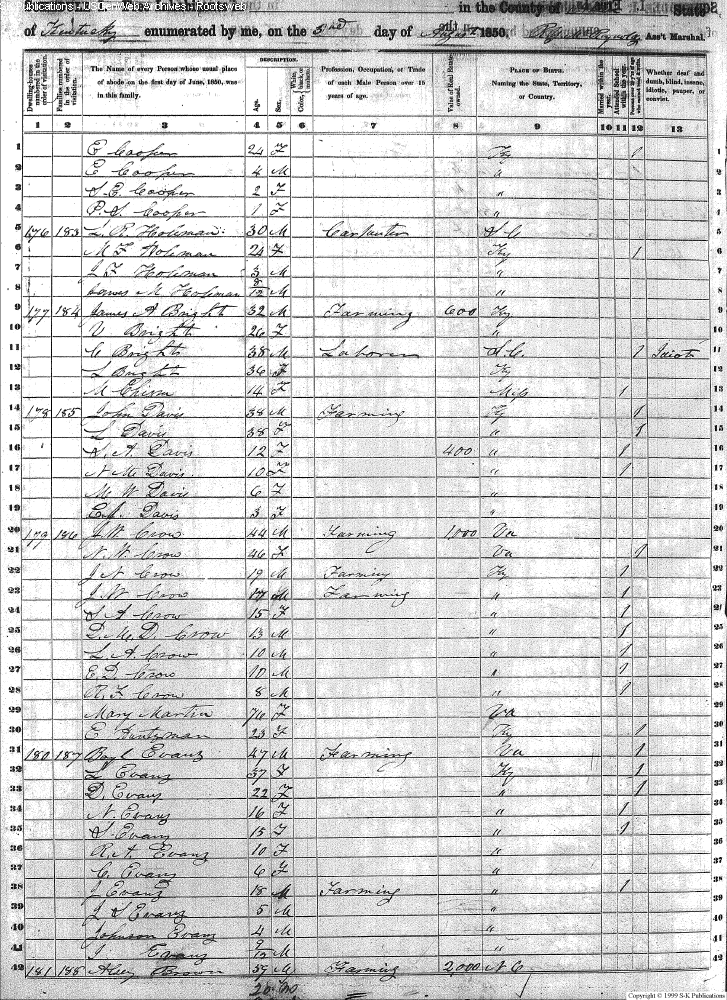 Publications - USGenWeb Archives - Rootsweb
in the County of State
of Kentucky enumerated by me, on the 3nd day of August 1850. Ass't Marshal.
Dwelling-houses numbered in the order of visitation.
Families numbered in the order of visitation.
The Name of every Person whose usual place of abode on the first day of June, 1850, was in this family.
DESCRIPTION.
Age.
Sex.
Color, White, black, or mulatto.
Profession, Occupation, or Trade of each Male Person over 15 years of age.
Value of Real Estate owned.
PLACE OF BIRTH.
Naming the State, Territory, or Country.
Married within the year.
Attended School within the year.
Whether deaf and dumb, blind, insane, idiotic, pauper, or convict.
1 2 3 4 5 6 7 8 9 10 11 12 13
1 E Cooper 24 F Ky 1 1
2 E Cooper 4 M " 2
3 S. E. Cooper 2 F " 3
4 P. S. Cooper 1 F " 4
5 176 183 L. R. Holiman 30 M Carpenter S C 5
6 M F Holiman 24 F Ky 1 6
7 J F Holiman 3 M " 7
8 James M Holiman 8/12 M " 8
9 177 184 James A Bright 32 M Farming 600 Ky 9
10 V Bright 26 F " 10
11 C Bright 38 M Laborer S.C. 1 Idiotic 11
12 L Bright 36 F Ky 12
13 M Chism 14 F Miss 1 13
14 178 185 John Davis 38 M Farming Ky 1 14
15 L Davis 38 F " 1 15
16 S. A. Davis 12 F 400 " 1 16
17 N. M. Davis 10 F " 1 17
18 M. W Davis 6 F " 18
19 E. A. Davis 3 F " 19
20 179 186 J. W. Crow 44 M Farming 1,000 Va 20
21 N. W. Crow 46 F Va 1 21
22 J N Crow 19 M Farming Ky 1 22
23 J. W. Crow 17 M Farming " 1 23
24 S A Crow 15 F " 1 24
25 D. M. D. Crow 13 M " 1 25
26 L. A. Crow 10 M " 1 26
27 E. D. Crow 10 M " 1 27
28 R. F Crow 8 M " 1 28
29 Mary Martin 76 F Va 29
30 E 23 F Ky 1 30
31 180 187 Evans 47 M Farming Va 1 31
32 L Evans 37 F Ky 1 32
33 D. Evans 22 F " 1 33
34 N. Evans 16 F " 1 34
35 S. Evans 15 F " 1 35
36 R. A. Evans 10 F " 36
37 C. Evans 6 F " 37
38 J Evans 18 M Farming " 1 38
39 J S Evans 5 M " 39
40 Johnson Evans 4 M " 40
41 J Evans 9/12 M " 41
42 181 188 Brown 59 M Farming 2,000 N C 42
Copyright © 1999 S-K Publications